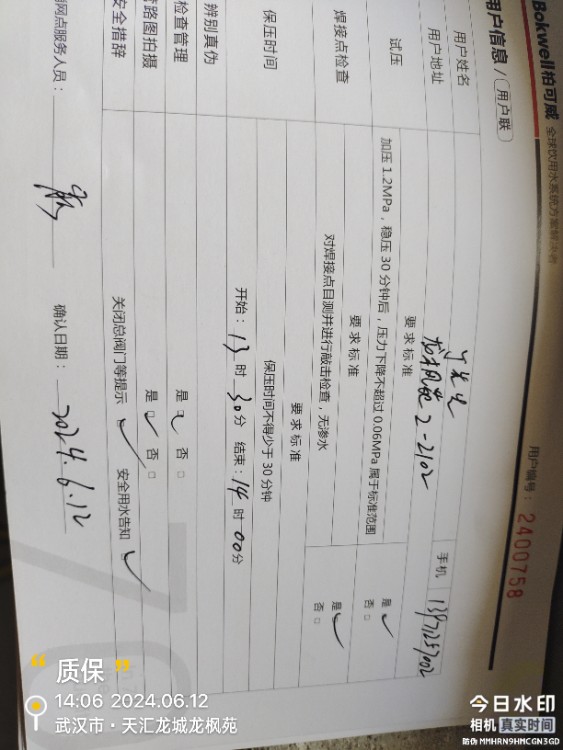 Bokwell柏可威 全球饮用水系统方案解决者
用户信息 / 用户联
用户编号: 2400758
用户姓名
手机
用户地址 2-2102
要求标准
试压
加压1.2MPa，稳压30分钟后，压力下降不超过0.06MPa属于标准范围
是 ✓
否 □
要求标准
焊接点检查
对焊接点目测并进行敲击检查，无渗水
是 ✓
否 □
要求标准
保压时间
保压时间不得少于30分钟
开始: 13 时 30 分 结束: 14 时 00 分
辨别真伪
检查管理 是 ✓ 否 □
管路图拍摄 是 ✓ 否 □
安全措辞 关闭总阀门等提示 ✓ 安全用水告知 ✓
网点服务人员:
确认日期: 2024.6.12
质保
14:06 2024.06.12
武汉市·天汇龙城龙枫苑
今日水印
相机 真实时间
防伪 MMHRN9HMCGN3GD